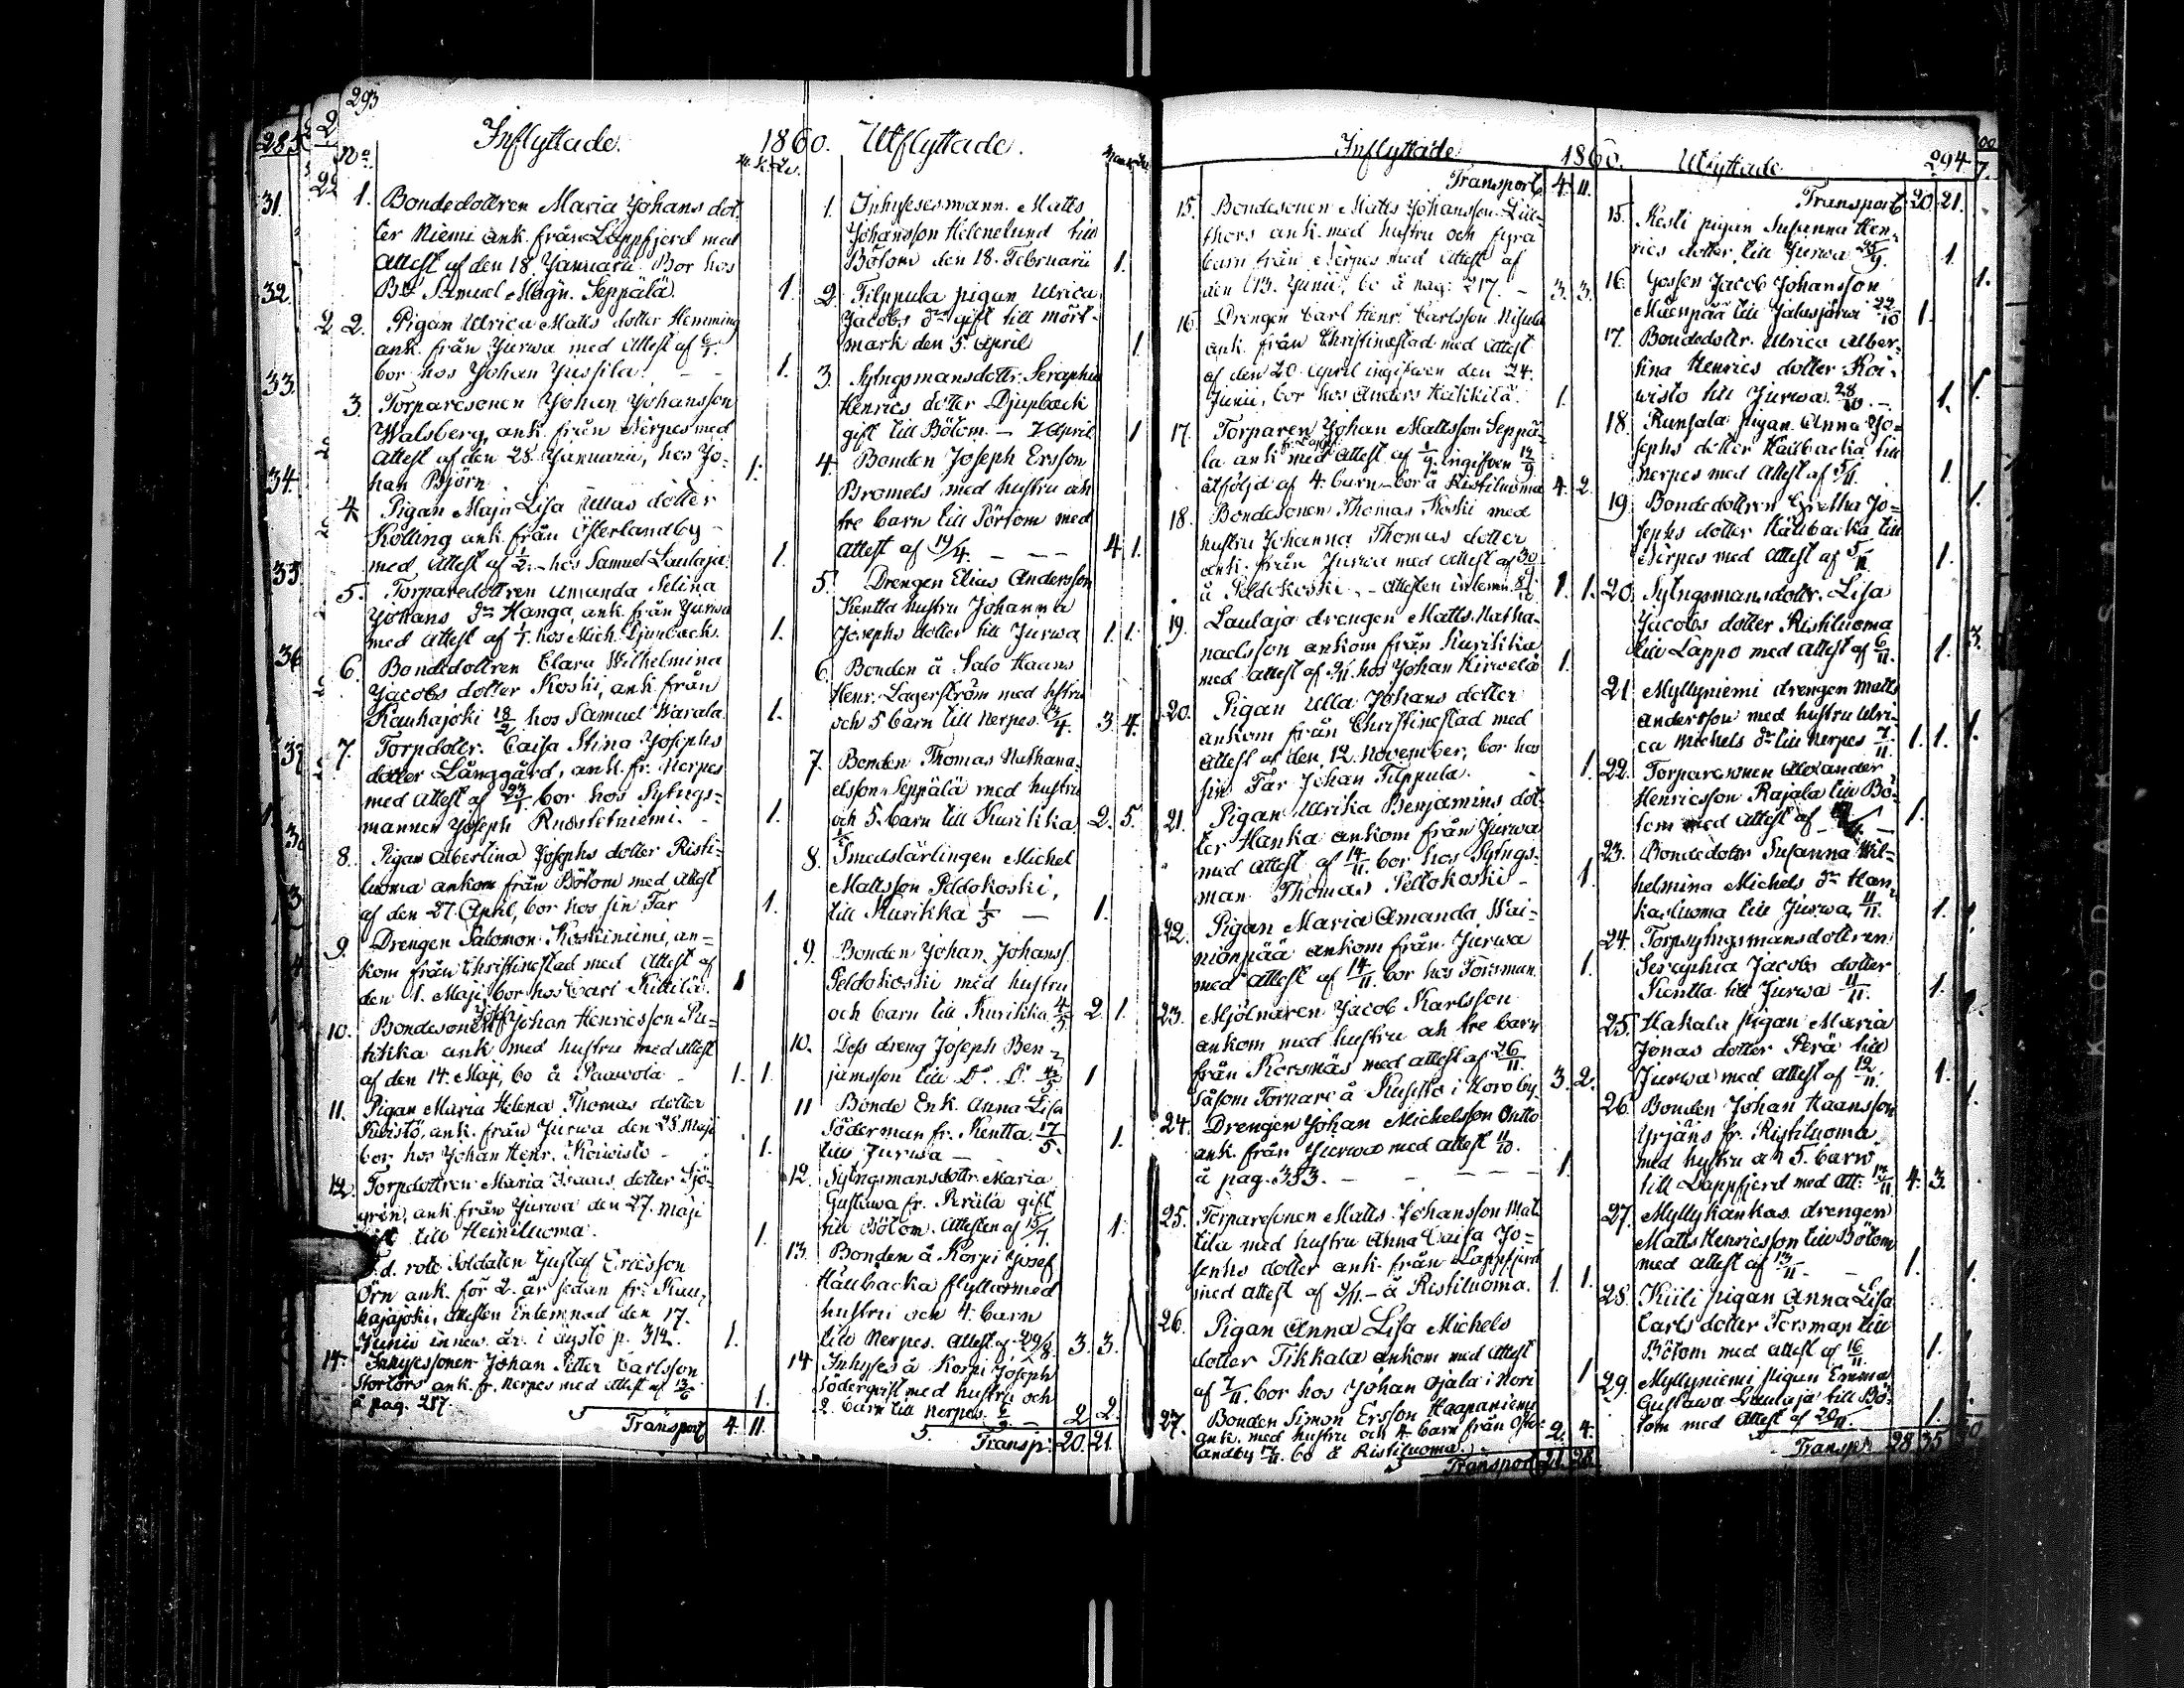 293
Inflyttade. 1860. Utflyttade.
No
1. Bondedottren Maria Johans dot=
ter Niemi ank. från Lappfjerd med
Attest af den 18 Januarii. Bor hos
Bd Samuel Magn. Seppälä. 1.
2. Pigan Ulrica Matts dotter Hemming
ank. från Jurwa med Attest af
bor hos Johan Jussila. 1.
3. Torparesonen Johan Johansson
Walsberg, ank. från Nerpes med
Attest af den 28 Januarii, hos Jo=
han Björn 1.
4. Pigan Maja Lisa Ullas dotter
Kölling ank. från Österlandby
med Attest af 1/2. hos Samuel Laulaja 1.
5. Torparedottren Amanda Selina
Johans dr Hanga, ank. från Jurwa
med Attest af hos Mich. Djupback. 1.
6. Bondedottren Clara Wilhelmina
Jacobs dotter Koski, ank. från
Kauhajoki 18/2 hos Samuel Warala 1.
7. Torpdottr. Caisa Stina Josephs
dotter Långgård, ank. fr. Nerpes
med Attest af 23/1 bor hos Sytngs=
mannen Joseph 1.
8. Pigan Albertina Josephs dotter Risti=
luoma ankom från Bötom med Attest
af den 27. April, bor hos sin Far 1.
9. Drengen Salomon Koskiniemi, an=
kom från Christinestad med Attest af
den 1. Maji, bor hos Carl 1
10. Bondesonen Johan Henricsson Pu=
ank med hustru med Attest
af den 14. Maji, bo å 1. 1.
11. Pigan Maria Helena Thomas dotter
Kuvistö, ank. från Jurwa den 25. Maji
bor hos Johan Henr. Koiwisto 1.
12. Torpdottren Maria Isaacs dotter Sjö=
grén, ank. från Jurwa den 27. Maji
till Heiniluoma. 1.
F.d. rote Soldaten Gustaf Ericsson
Örn ank. för 2. år sedan fr. Kau=
hajoki, attesten inlemnad den 17.
Junii innew. år. i p. 312. 1.
14. Inhysessonen Johan Petter Carlsson
Stortörs ank. fr. Nerpes med Attest af 13/6
å pag. 287. 1.
Transport 4. 11.
1. Inhysesmann. Matts
Johansson Helenelund till
Bötom den 18. Februarii 1.
2. Tilppula pigan Ulrica
Jacobs dr gift till Mört=
mark den 5. April 1.
3. Sytngsmansdottr. Seraphia
Henrics dotter Djupback
gift till Bötom. — 7 April 1
4. Bonden Joseph Ersson
Bromels med hustru och
tre barn till Pörtom med
Attest af 19/4. 4. 1.
5. Drengen Elias Andersson
Kentta hustru Johanna
Josephs dotter till Jurwa 1. 1.
6. Bonden å Salo Haans
Henr. Lagerström med hstru
och 5 barn till Nerpes. 3/4. 3. 4.
7. Bonden Thomas Nathana=
elsson Seppälä med hustru
och 5. barn till Kurikka 2. 5.
8. Smedslärlingen Michel
Mattsson Peldokoski,
till Kurikka 1/5 — 1.
9. Bonden Johan Johanss.
Peldokoski med hustru
och barn till Kurikka 4/5 2. 1.
10. Dess dreng Joseph Ben=
jamsson till Do. Do. 4/5. 1
11 Bonde Enk. Anna Lisa
Söderman fr. Kentta. 17/5.
till Jurwa — 1.
12. Sytngsmansdottr. Maria
Gustawa fr. Perälä gift
till Bötom. Attesten af 15/7. 1.
13. Bonden å Korpi Josef
Hällbacka flyttar med
hustru och 4. barn
till Nerpes. Attest af 29/8. 3. 3.
14 Inhyses å Korpi Joseph
Söderqvist med hustru och
2. barn till Nerpes. 2 2.
Transp: 20. 21.
Inflyttade 1860. Utflyttade 294
Transport 4. 11.
15. Bondesonen Matts Johansson Lill=
thors ank. med hustru och fyra
barn från Nerpes med Attest af
den 13. Junii, bo å pag: 217. — 3. 3.
16 Drengen Carl Henr. Carlsson Nisula
ank. från Christinestad med Attest
af den 20. April ingifwen den 24.
Junii, bor hos Anders Heikkilä. 1.
17. Torparen Johan Mattsson Seppä=
lä ank med Attest af 1/9. ingifven 12/9
åtföljd af 4. barn — bor å Ristiluoma 4. 2.
18. Bondesonen Thomas Koski med
hustru Johanna Thomas dotter
ank. från Jurwa med Attest af
å Peldokoski. — Attesten inlemn. 1. 1.
19. Laulaja drengen Matts Natha=
naelsson ankom från Kurikka
med attest af hos Johan Hirwelä 1.
20. Pigan Ulla Johans dotter
ankom från Christinestad med
Attest af den 12. November, bor hos
sin Far Johan Tilppula. 1.
21. Pigan Ulrika Benjamins dot=
ter Hanka ankom från Jurwa
med attest af 14/11. bor hos Sytngs=
man Thomas Peltokoski — 1.
22. Pigan Maria Amanda Wai=
nionpää ankom från Jurwa
med attest af 14/11. bor hos Forsman. 1.
23. Mjölnaren Jacob Karlsson
ankom med hustru och tre barn
från Korsnäs med attest af 26/11.
såsom Tornare å i Noroby. 3. 2.
24. Drengen Johan Michelsson Ontto
ank. från Jurwa med Attest 11/10.
å pag. 353. — 1.
25. Torparesonen Matts Johansson Mat=
tila med hustru Anna Caisa Jo=
sephs dotter ank. från Lappfjerd
med attest af 3/11. — å Ristiluoma. 1. 1.
26. Pigan Anna Lisa Michels
dotter Tikkala ankom med Attest
af 7/11. bor hos Johan Ojala i Nori 1
27. Bonden Simon Ersson Haapaniemi
ank. med hustru och 4 barn från Öster=
landby 12/11. bo å Ristiluoma. 2. 4.
Transport 21. 28.
Transport 20. 21.
15. Kesti pigan Susanna Hen=
rics dotter till Jurwa 25/9. 1.
16. Gossen Jacob Johansson
Mäenpää till Jalasjärwi 22/10 1.
17. Bondedottr. Ulrica Alber=
tina Henrics dotter Koi=
wisto till Jurwa. 28/10. — 1.
18. Runsala pigan Anna Jo=
sephs dotter Hällbacka till
Nerpes med Attest af 5/11. 1.
19. Bondedottren Gretha Jo=
sephs dotter Hällbacka till
Nerpes med Attest af 5/11 1.
20. Sytngsmansdottr. Lisa
Jacobs dotter Ristiluoma
till Lappo med Attest af 6/11. 1.
21 Myllyniemi drengen Matts
Andersson med hustru Ulri=
ca Michels dr till Nerpes 7/11. 1. 1.
22. Torparesonen Alexander
Henricsson Rajala till Bö=
tom med Attest af 1.
23. Bondedottr Susanna Wil=
helmina Michels dr Han=
kaluoma till Jurwa 11/11. 1.
24. Torpsytngsmansdottren
Seraphia Jacobs dotter
Kentta till Jurwa 11/11. 1.
25. Hakala pigan Maria
Jonas dotter Perä till
Jurwa med attest af 12/11. 1.
26. Bonden Johan Haansson
Yrjäns fr. Ristiluoma
med hustru och 5. barn
till Lappfjerd med att. 13/11 4. 3.
27. Myllykankas drengen
Matts Henricsson till Bötom
med attest af 13/11 — 1.
28. Kiili pigan Anna Lisa
Carls dotter Forsman till
Bötom med attest af 16/11. 1.
29. Myllyniemi pigan Emma
Gustawa Laulaja till Bö=
tom med Attest af 20/11. 1.
Transp. 28 35
KODAK SAFETY